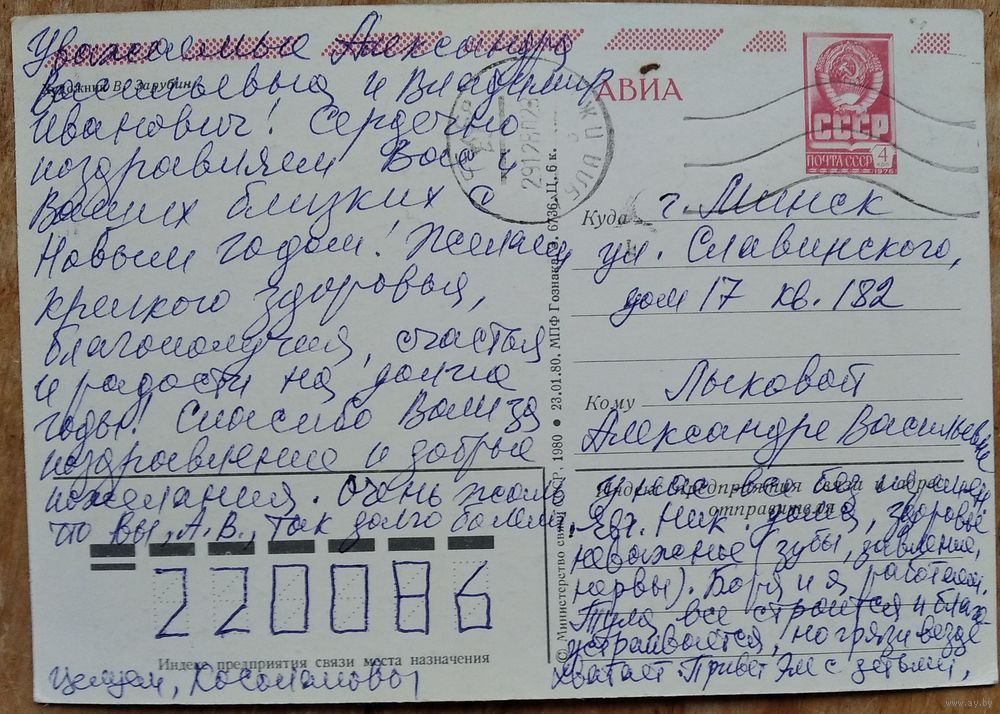 Уважаемые Александра
Васильевна и Владимир
Иванович! Сердечно
поздравляем Вас и
Ваших близких с
Новым годом! Желаем
крепкого здоровья,
благополучия, счастья
и радости на долгие
годы! Спасибо Вам за
поздравление и добрые
пожелания. Очень жаль
что Вы, А.В., так долго болели
Художник В. Зарубин
АВИА
СССР
ПОЧТА СССР
4
КОП
1976
291280
Куда г. Минск
ул. Славинского,
дом 17 кв. 182
Кому Лыковой
Александре Васильевне
Индекс предприятия связи и адрес
отправителя
У нас все без изменений
Евг. Ник. дома, здоровье
неважное (зубы, давление,
нервы). Боря и я работаем.
Тула все строится и благо-
устраивается, но грязи везде
хватает. Привет Эм. с детьми,
Целуем, Косомановы
220086
Индекс предприятия связи места назначения
© Министерство связи СССР, 1980 • 23.01.80. МПФ Гознака. З. 6736. Ц. 6 к.
www.ay.by